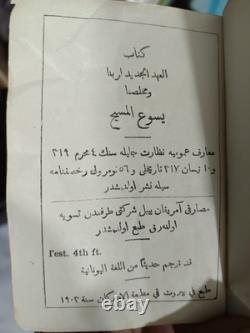 كتاب
العهد الجديد لربنا
ومخلصنا
يسوع المسيح
معارف عموميه نظارت جليله سنك ٤ محرم ٣١٩
و ١٠ نيسان ٣١٧ تاريخلى و ٥٦ نومرولى رخصتنامه
سيله نشر اولنمشدر
مصارفى آمريقان بيبل شركتى طرفندن تسويه
اولنه رق طبع اولنمشدر
Test. 4th ft.
قد ترجم حديثًا من اللغة اليونانية
طبع في بيروت في مطبعة الاميركان سنة ١٩٠٢
ebay